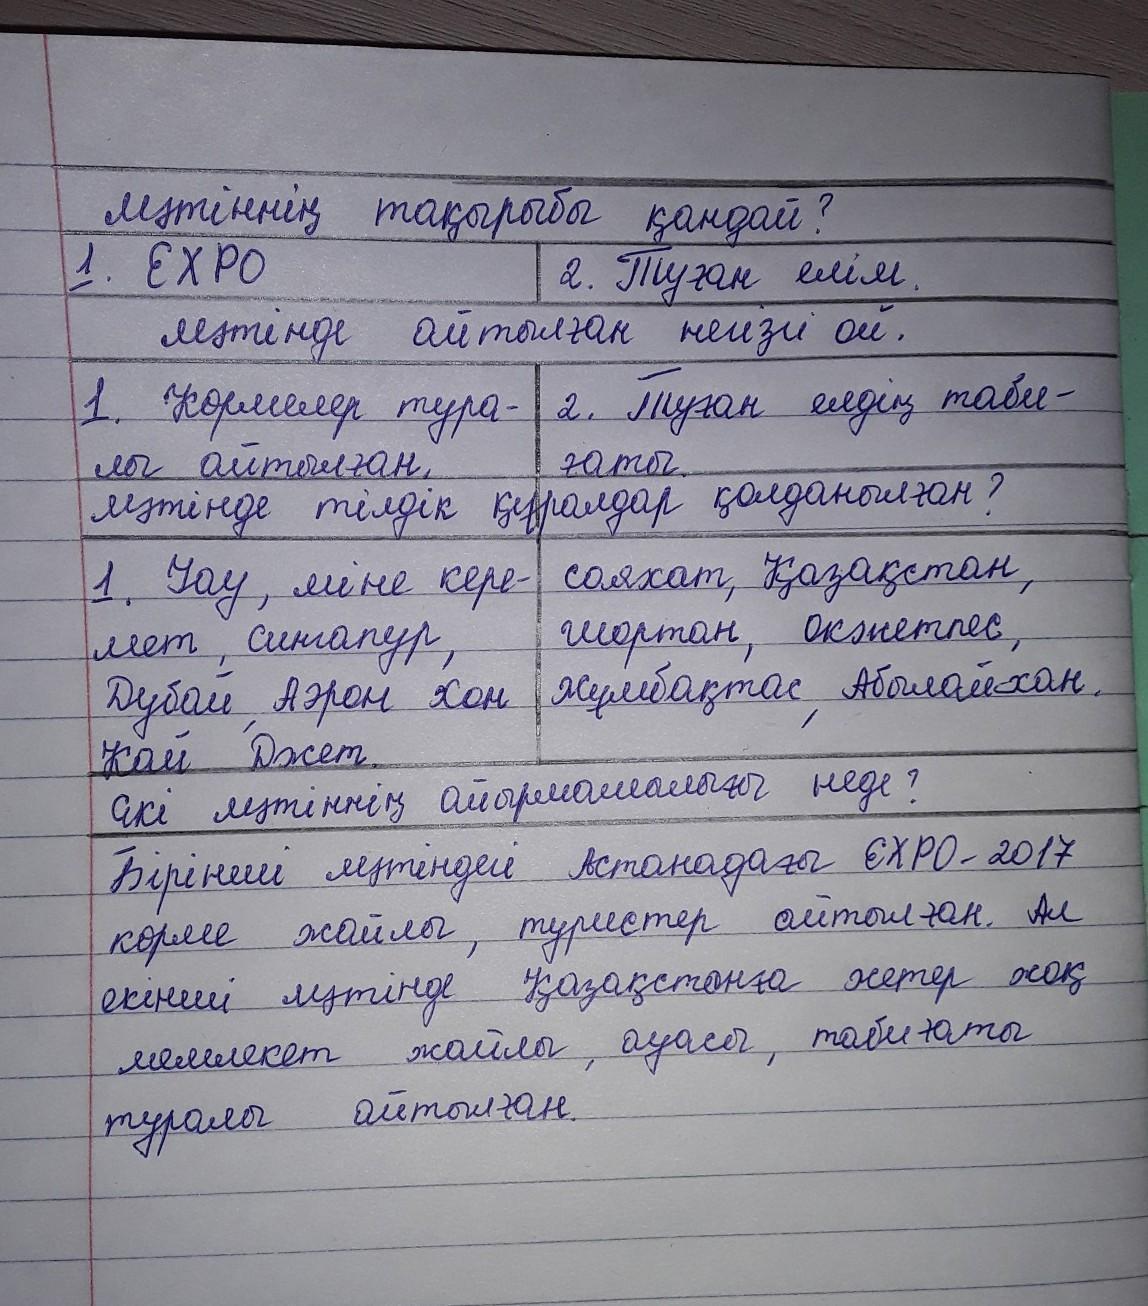 мәтіннің тақырыбы қандай?
1. EXPO 2. Туған елім.
мәтінде айтылған негізгі ой.
1. Көрмелер тура- 2. Туған елдің таби-
лы айтылған. ғаты.
мәтінде тілдік құралдар қолданылған?
1. Уау, міне кере- саяхат, Қазақстан,
мет, Сингапур, Шортан, Оқжетпес,
Дубай, Аэрон Хон Жұмбақтас, Абылайхан.
Кай Джет.
Екі мәтіннің айырмашылығы неде?
Бірінші мәтіндей Астанадағы EXPO-2017
көрме жайлы, туристер айтылған. Ал
екінші мәтінде Қазақстанға жетер жоқ
мемлекет жайлы, ауасы, табиғаты
туралы айтылған.